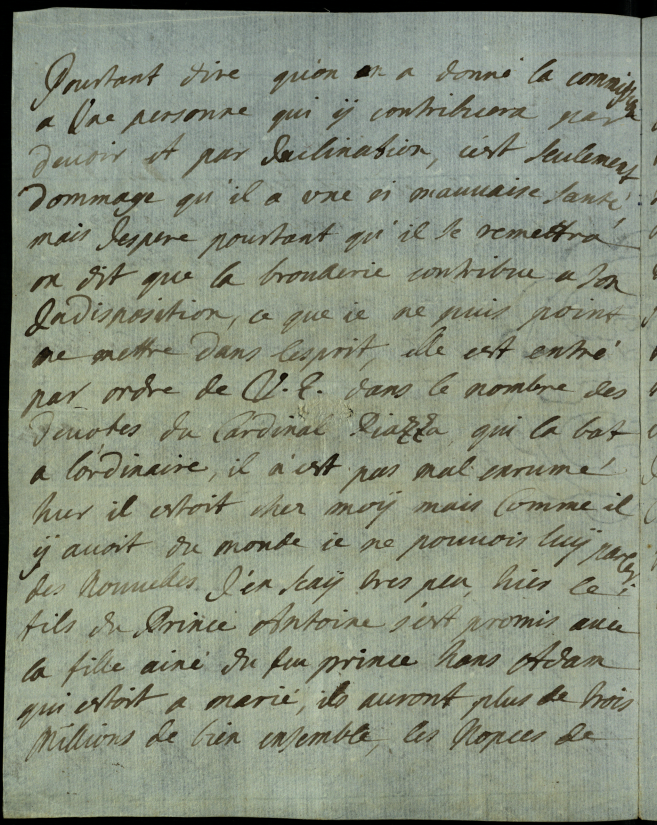 Pourtant dire qu'on en a donné la commission
a Une personne qui ÿ contribuera par
devoir et par Inclination, c'est seulement
dommage qu'il a une si mauvaise santé,
mais J'espere pourtant qu'il se remettra
on dit que la brouderie contribue a son
Indisposition, ce que ie ne puis point
me mettre dans l'esprit, elle est entré
par ordre de V. E. dans le nombre des
devotes du Cardinal Piazza, qui la bat
a l'ordinaire, il n'est pas mal enrumé
hier il estoit chez moÿ mais Comme il
ÿ avoit du monde ie ne pouvois luÿ parler
des Nouvelles. J'en scaÿ tres peu, hier le
fils du Prince Antoine s'est promis avec
la fille ainé du feu prince hans Adam
qui estoit a marié, ils auront plus de trois
Millions de bien ensemble, les Nopces de